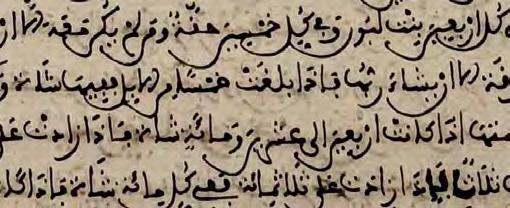 كل اربعين بنت لبون وفي كل خمسين حقة ومن لم يكن معه الا ار
دقة الا ان يشاء ربها فاذا بلغت خمسا من الابل ففيها شاة و
ئمتها اذا كانت اربعين الى عشرين ومائة شاة فاذا زادت على
ثلاث فاذا زادت على ثلاثمائة ففي كل مائة شاة فاذا كا